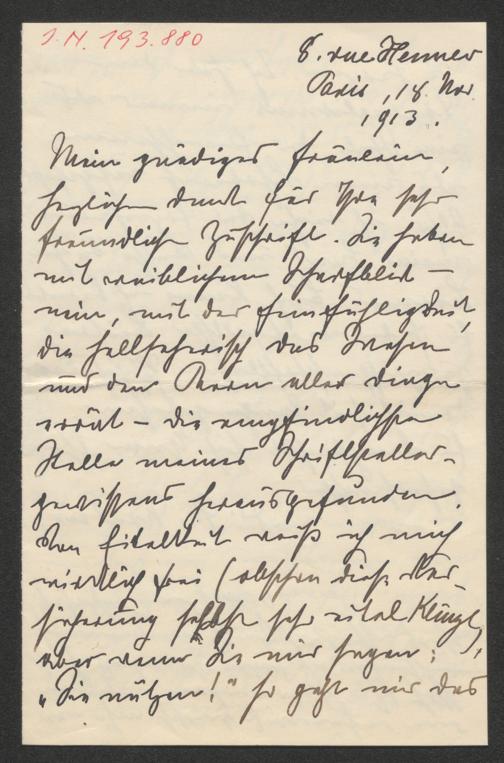 I.N. 193.880
8. rue Henner
Paris, 18 Nov
1913.
Mein gnädiges Fräulein,
herzlichen Dank für Ihre sehr
freundliche Zuschrift. Sie haben
mit weiblichem Scharfblick –
nein, mit der Feinfühligkeit,
die hellseherisch das Wesen
und den Kern aller Dinge
errät – die empfindlichste
Stelle meines Schriftsteller-
gewissens herausgefunden.
Von Eitelkeit weiß ich mich
wirklich frei (obschon diese Ver-
sicherung selbst sehr eitel klingt),
aber wenn Sie mir sagen:
„Sie nützen!" so geht mir das